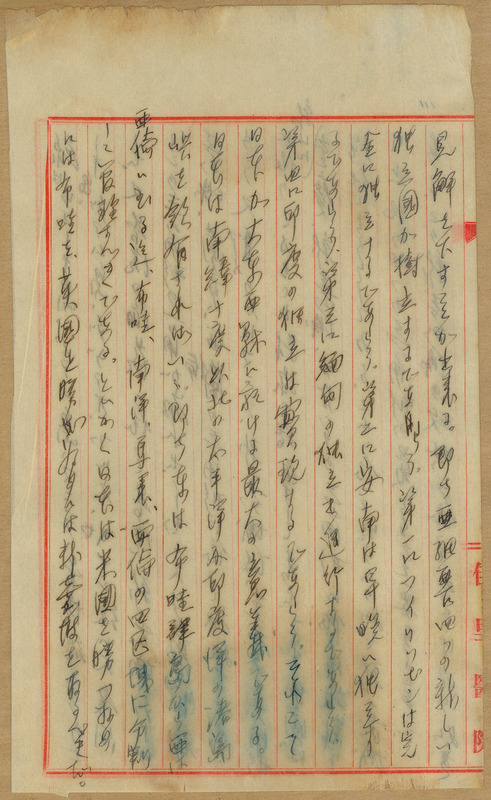 見解を下すことが出来る。即ち亜細亜に四つの新しい
独立国が樹立するであらう。第一にフイリッピンは完
全に独立するであらう。第二に安南は早晩独立す
るであらう。第三に緬甸の独立も進行するであらう。
第四に印度の独立は実現するであらう。これこそ
日本が大東亜戦に於ける最大の意義である。
日本は南緯十度以北の太平洋印度洋の諸島
嶼を領有すればいゝ。即ち東は布哇諸島から西は
西倫に至る迄、布哇、南洋、馬来、西倫の四区域に分割
して管理すべきである。とにかく日本は米国を勝つ為め
には布哇を、英国を勝つ為には新嘉坡を取るべきだ。